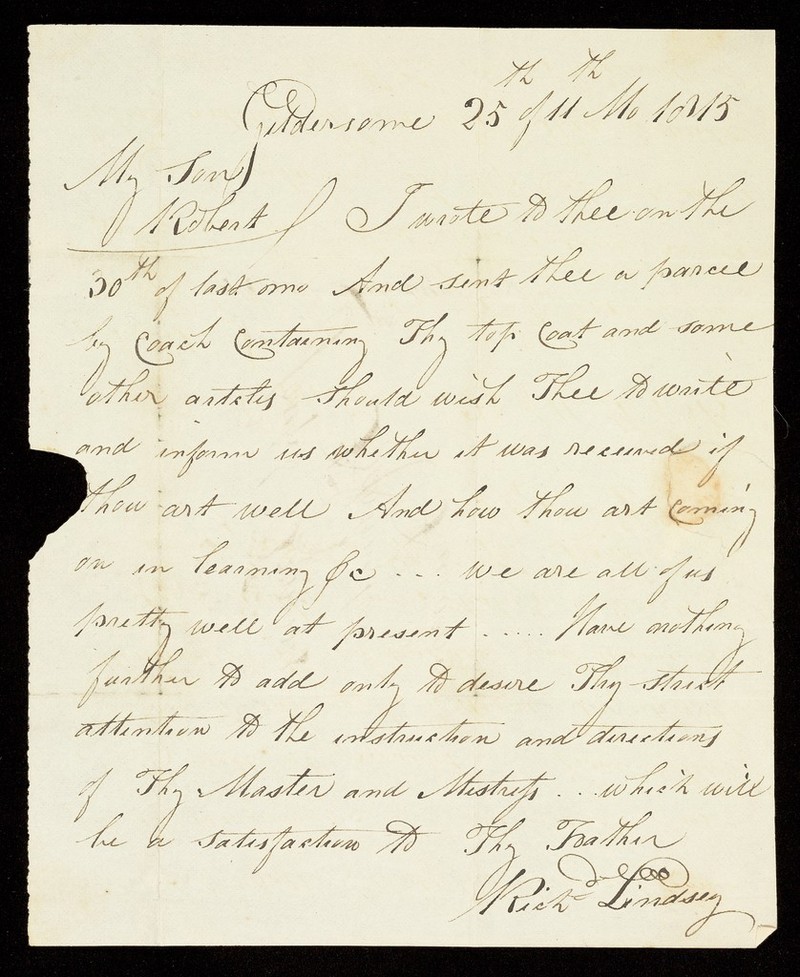 Gildersome 25th of 11th Mo 1815
My Son
Robert I wrote to thee on the
30th of last mo And sent thee a parcel
by Coach Containing Thy top Coat and some
other articles should wish Thee to write
and inform us whether it was received if
thou art well And how thou art Coming
on in learning &c - - - we are all of us
pretty well at present . . . . . Have nothing
further to add only to desire Thy strict
attention to the instruction and directions
of Thy Master and Mistress . . which will
be a satisfaction to Thy Father
Richd Lindsey